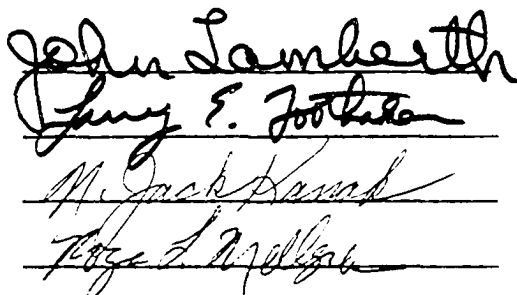 John Lamberth
Larry E. Toothaker
N. Jack Kanak
Roger L. Mellgren